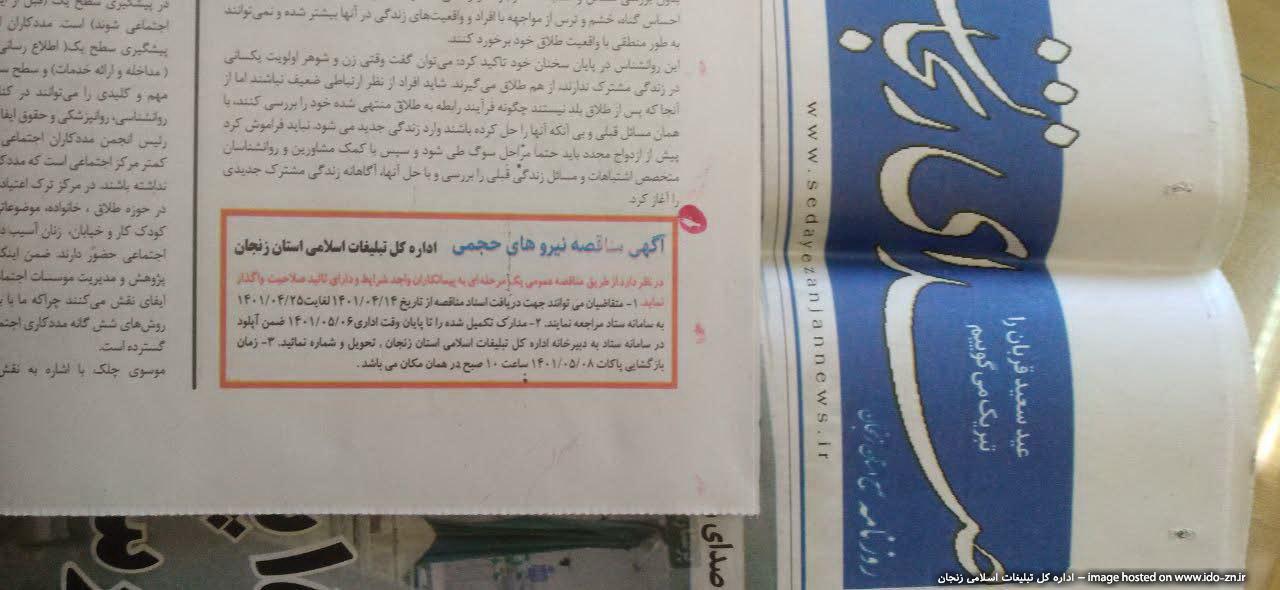 احساس گناه، خشم و ترس از مواجهه با افراد و واقعیت‌های زندگی در آنها بیشتر شده و نمی‌توانند
به طور منطقی با واقعیت طلاق خود برخورد کنند.
این روانشناس در پایان سخنان خود تاکید کرد: می‌توان گفت وقتی زن و شوهر اولویت یکسانی
در زندگی مشترک ندارند، از هم طلاق می‌گیرند. شاید افراد از نظر ارتباطی ضعیف نباشند اما از
آنجا که پس از طلاق بلد نیستند چگونه فرآیند رابطه به طلاق منتهی شده خود را بررسی کنند، با
همان مسائل قبلی و بی آنکه آنها را حل کرده باشند وارد زندگی جدید می شود. نباید فراموش کرد
پیش از ازدواج مجدد باید حتما مراحل سوگ طی شود و سپس با کمک مشاورین و روانشناسان
متخصص اشتباهات و مسائل زندگی قبلی را بررسی و با حل آنها، آگاهانه زندگی مشترک جدیدی
را آغاز کرد.
آگهی مناقصه نیرو های حجمی اداره کل تبلیغات اسلامی استان زنجان
در نظر دارد از طریق مناقصه عمومی یک مرحله ای به پیمانکاران واجد شرایط و دارای تائید صلاحیت واگذار
نماید. ۱- متقاضیان می توانند جهت دریافت اسناد مناقصه از تاریخ ۱۴۰۱/۰۴/۱۴ لغایت ۱۴۰۱/۰۴/۲۵
به سامانه ستاد مراجعه نمایند. ۲- مدارک تکمیل شده را تا پایان وقت اداری ۱۴۰۱/۰۵/۰۶ ضمن آپلود
در سامانه ستاد به دبیرخانه اداره کل تبلیغات اسلامی استان زنجان ، تحویل و شماره نمائید. ۳- زمان
بازگشایی پاکات ۱۴۰۱/۰۵/۰۸ ساعت ۱۰ صبح در همان مکان می باشد .
در پیشگیری سطح یک (قبل از
اجتماعی شوند) است. مددکاران
پیشگیری سطح یک( اطلاع رسانی
( مداخله و ارائه خدمات) و سطح
مهم و کلیدی را می‌توانند در
روانشناسی، روانپزشکی و حقوق
رئیس انجمن مددکاران اجتماعی
کمتر مرکز اجتماعی است که
نداشته باشند. در مرکز ترک
در حوزه طلاق ، خانواده،
کودک کار و خیابان، زنان آسیب
اجتماعی حضور دارند. ضمن
پژوهش و مدیریت موسسات
ایفای نقش می‌کنند چراکه ما با
روش‌های شش گانه مددکاری
گسترده است.
موسوی چلک با اشاره به نقش
صدای زنجان
روزنامه صبح استان زنجان
www.sedayezanjannews.ir
عید سعید قربان را
تبریک می گوییم
صدای
اداره کل تبلیغات اسلامی زنجان – image hosted on www.ido-zn.ir